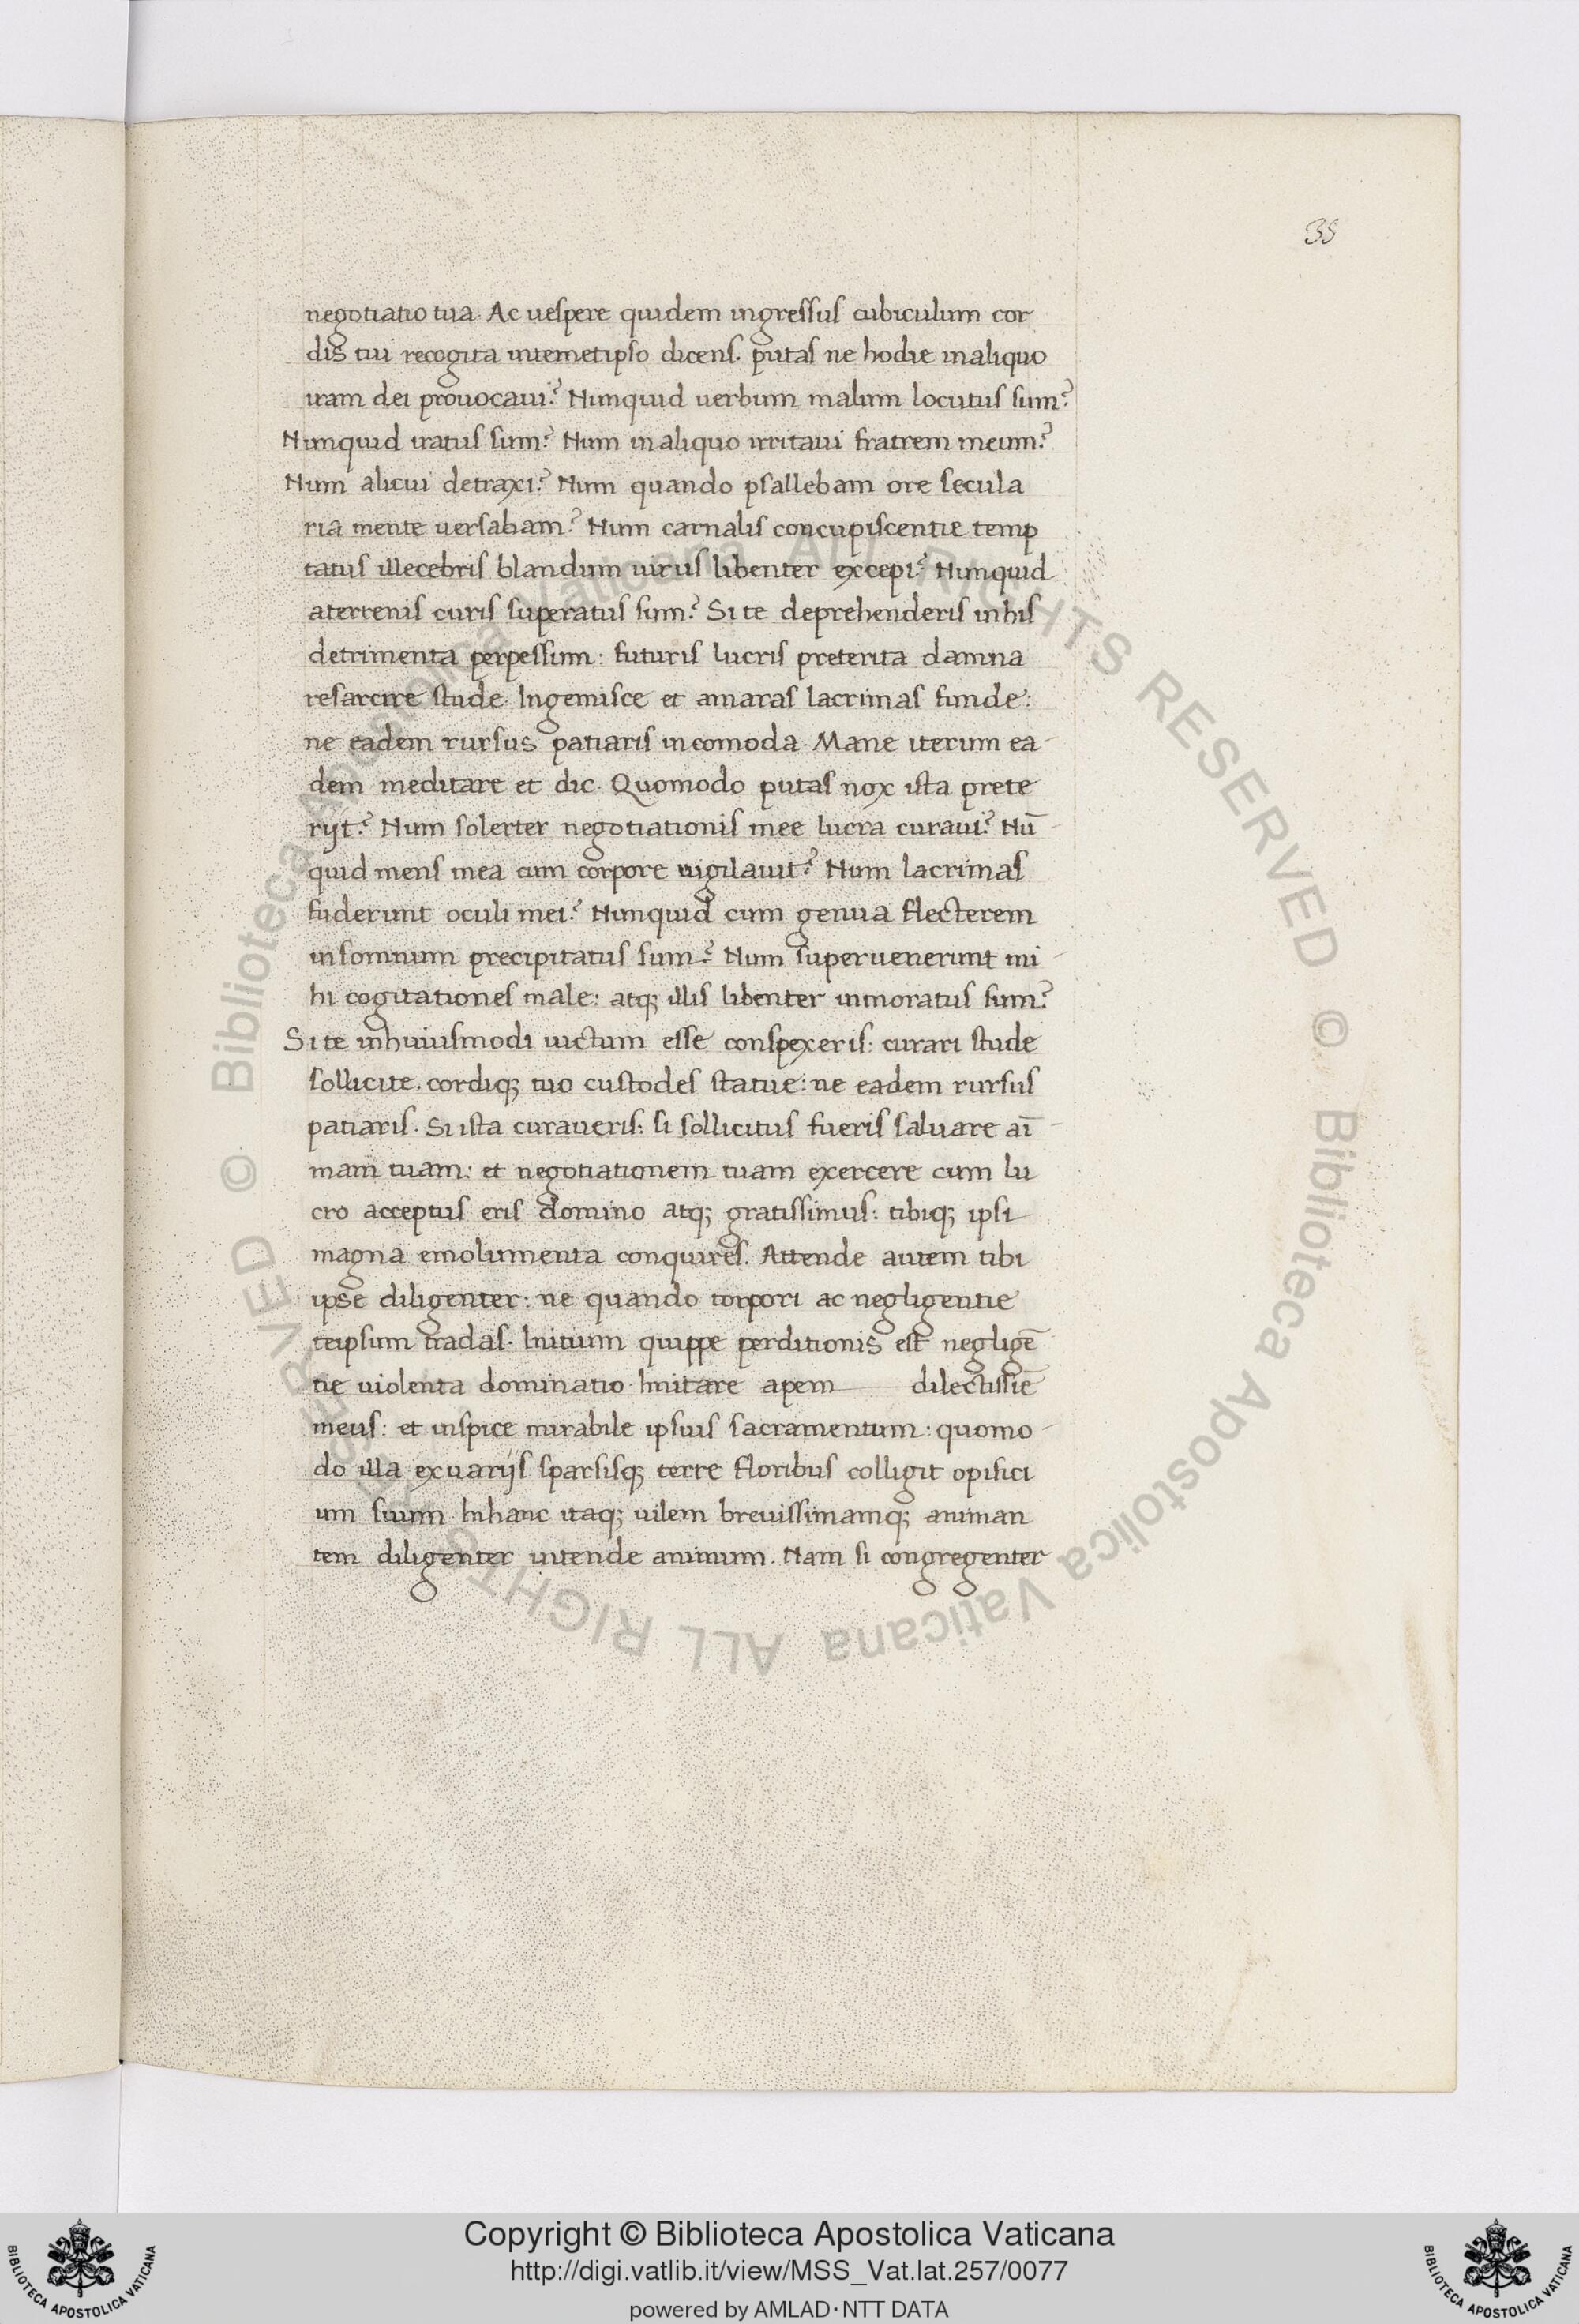 35
negotiatio tua. Ac uespere quidem ingressus cubiculum cor
dis tui recogita intemetipso dicens. putas ne hodie inaliquo
iram dei prouocaui? Numquid uerbum malum locutus sum?
Numquid iratus sum? Num inaliquo irritaui fratrem meum?
Num alicui detraxi? Num quando psallebam ore secula
ria mente uersabam? Num carnalis concupiscentie temp
tatus illecebris blandum uirus libenter excepi? Numquid
aterrenis curis superatus sum? Si te deprehenderis inhis
detrimenta perpessum: futuris lucris preterita damna
resarcire stude. Ingemisce et amaras lacrimas funde:
ne eadem rursus patiaris incomoda. Mane iterum ea-
dem meditare et dic. Quomodo putas nox ista prete
rijt? Num solerter negotiationis mee lucra curaui? Nū-
quid mens mea cum corpore uigilauit? Num lacrimas
fuderunt oculi mei? Numquid cum genua flecterem
insomnum precipitatus sum? Num superuenerunt mi-
hi cogitationes male: atq; illis libenter inmoratus sum?
Si te inhuiusmodi uictum esse conspexeris: curari stude
sollicite. cordiq; tuo custodes statue: ne eadem rursus
patiaris. Si ista curaueris: si sollicitus fueris saluare aī-
mam tuam: et negotiationem tuam exercere cum lu
cro acceptus eris domino atq; gratissimus: tibiq; ipsi
magna emolumenta conquires. Attende autem tibi
ipse diligenter: ne quando torpori ac negligentie
teipsum tradas. Initium quippe perditionis est negligē
tie uiolenta dominatio. Imitare apem dilectissīe
meus: et inspice mirabile ipsius sacramentum: quomo-
do illa exuarijs sparsisq; terre floribus colligit opifici
um suum. Inhanc itaq; uilem breuissimamq; animan
tem diligenter intende animum. Nam si congregenter
© Biblioteca Apostolica Vaticana ALL RIGHTS RESERVED © Biblioteca Apostolica Vaticana ALL RIGHTS RESERVED
BIBLIOTECA APOSTOLICA VATICANA
Copyright © Biblioteca Apostolica Vaticana
http://digi.vatlib.it/view/MSS_Vat.lat.257/0077
powered by AMLAD·NTT DATA
BIBLIOTECA APOSTOLICA VATICANA